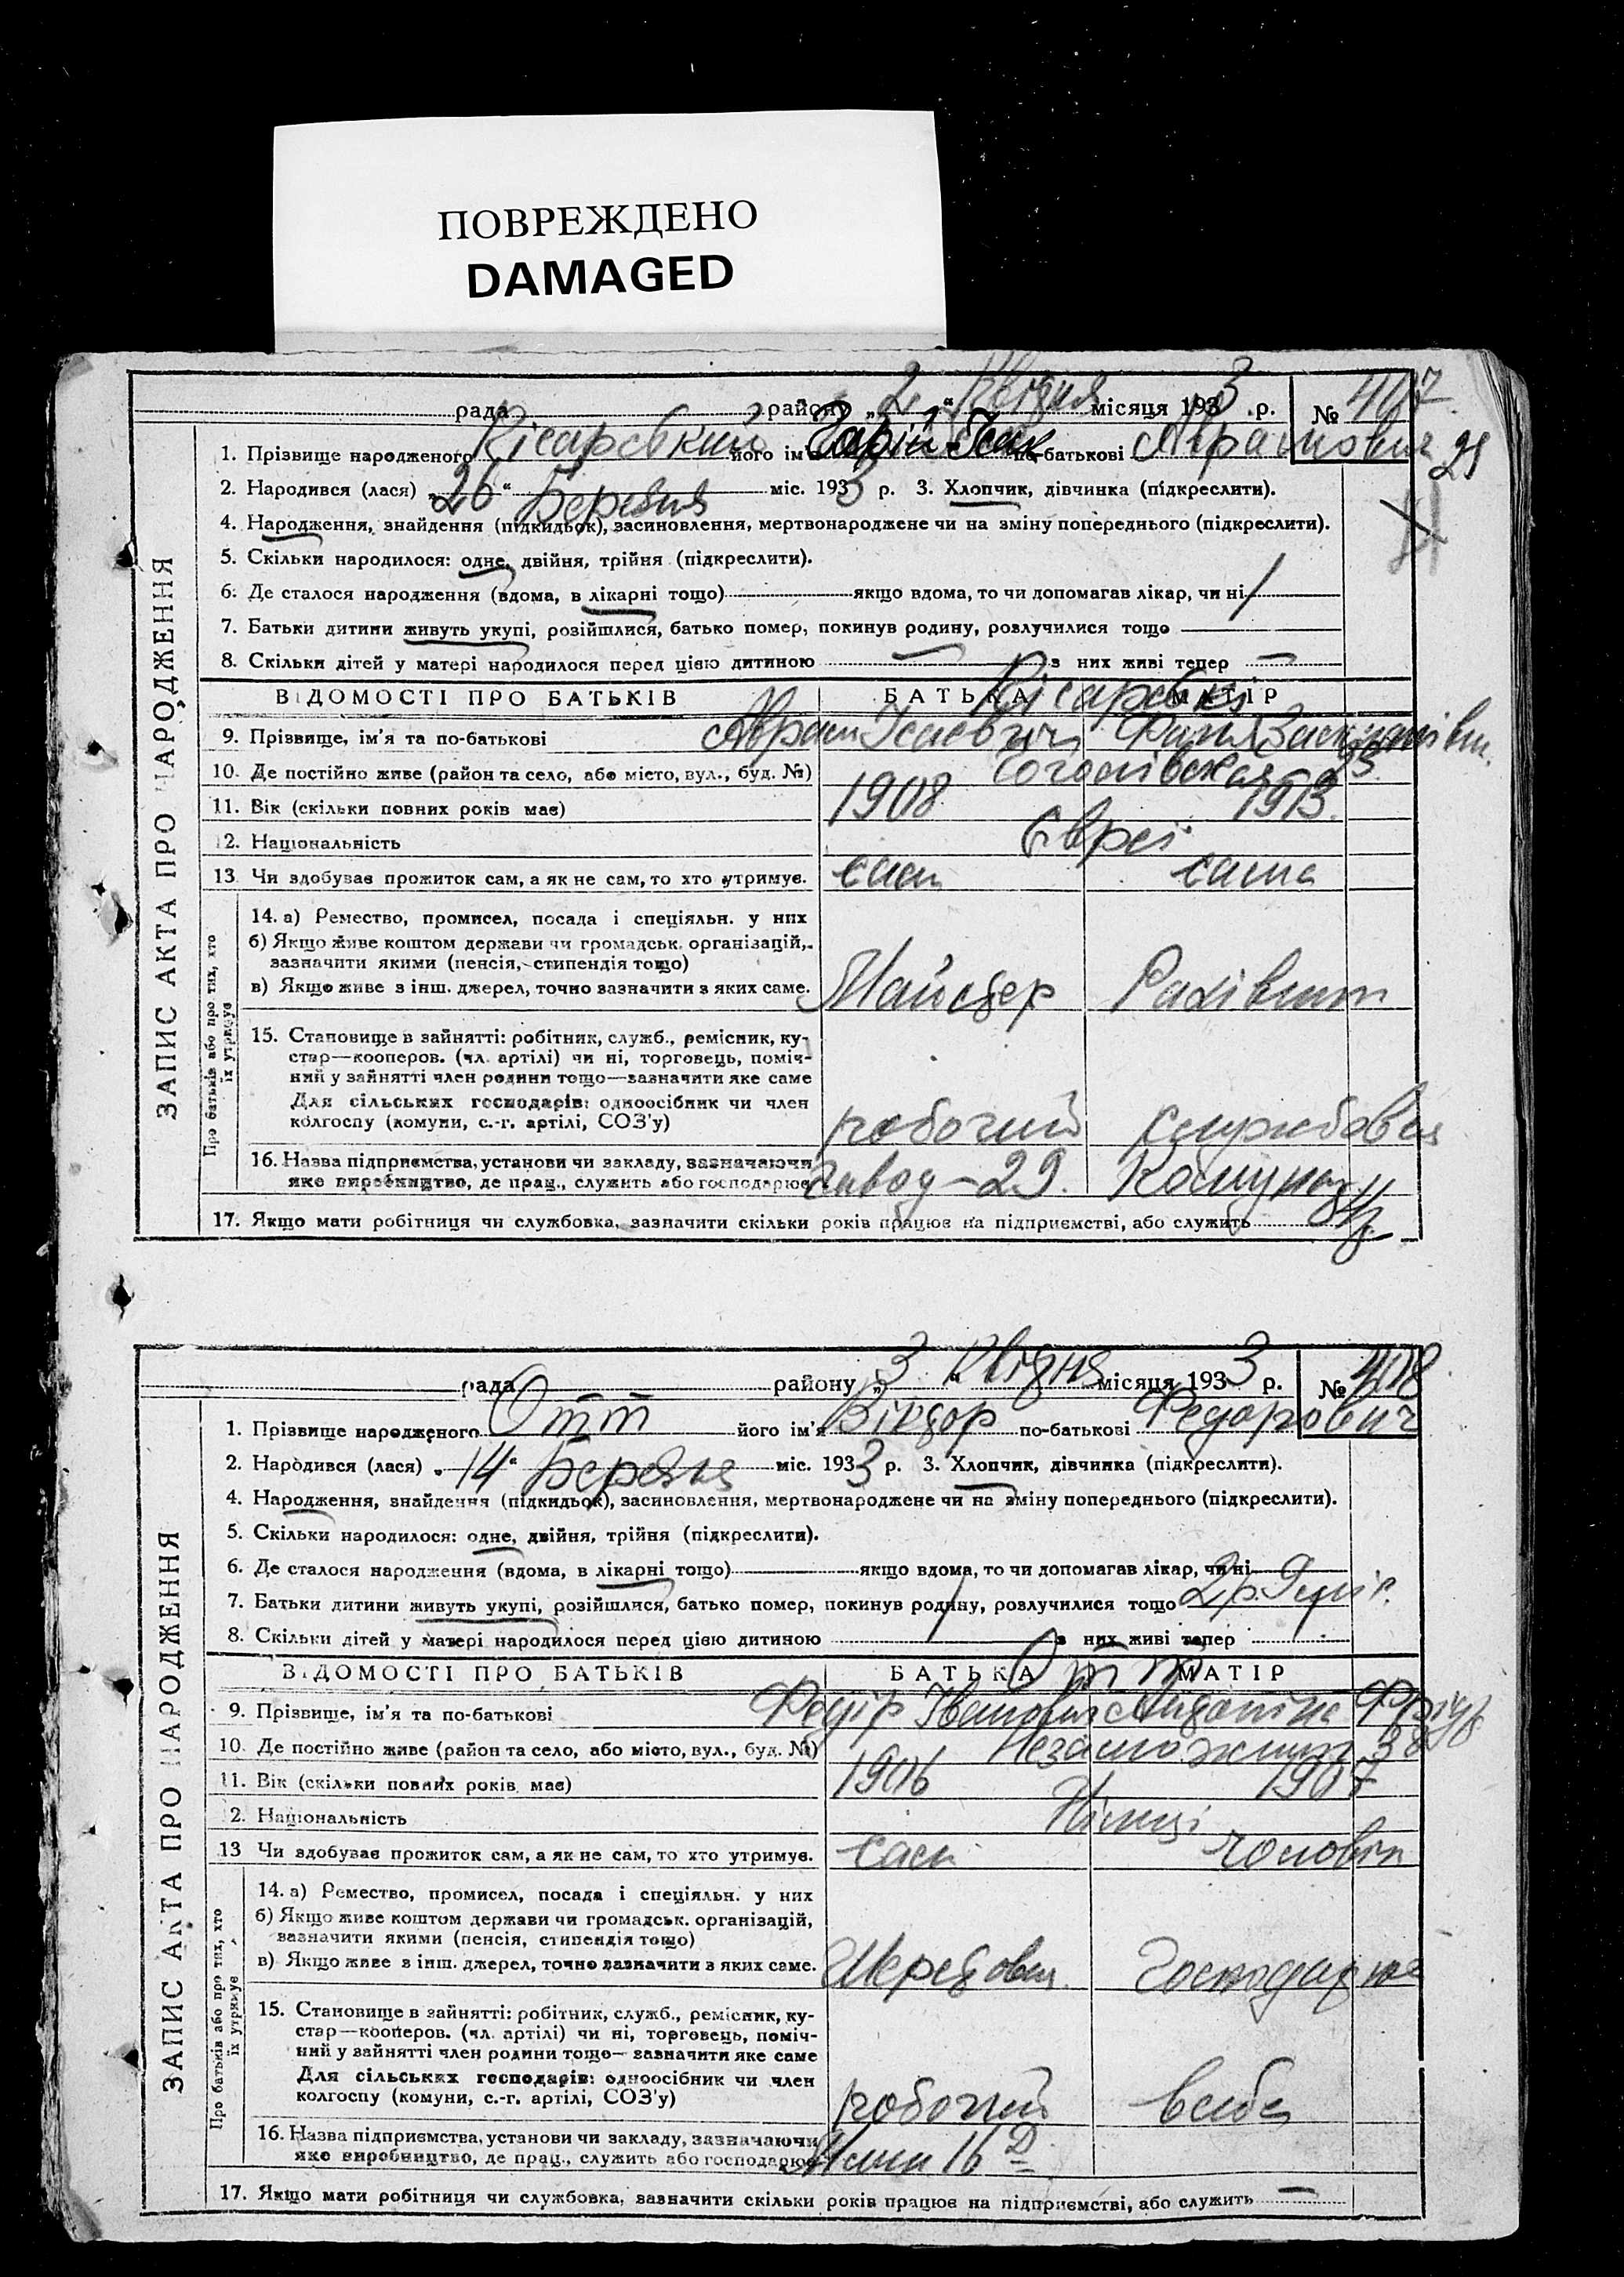 ПОВРЕЖДЕНО
DAMAGED
рада району „2“ Квітня місяця 1933 р. № 407
1. Прізвище народженого Кісарський його ім'я по-батькові Абрамович
29
2. Народився (лася) „26“ Березня міс. 1933 р. 3. Хлопчик, дівчинка (підкреслити).
4. Народження, знайдення (підкидьок), засиновлення, мертвонароджене чи на зміну попереднього (підкреслити).
5. Скільки народилося: одне, двійня, трійня (підкреслити).
6. Де сталося народження (вдома, в лікарні тощо) якщо вдома, то чи допомагав лікар, чи ні
7. Батьки дитини живуть укупі, розійшлися, батько помер, покинув родину, розлучилися тощо
8. Скільки дітей у матері народилося перед цією дитиною — з них живі тепер —
ВІДОМОСТІ ПРО БАТЬКІВ БАТЬКА МАТІР
Кісарські
9. Прізвище, ім'я та по-батькові Абрам Ісаєвич Фаня
10. Де постійно живе (район та село, або місто, вул., буд. №) Гоголівська 25
11. Вік (скільки повних років має) 1908 1913
12. Національність Євреї
13. Чи здобуває прожиток сам, а як не сам, то хто утримує. сам сама
14. а) Ремество, промисел, посада і спеціяльн. у них
б) Якщо живе коштом держави чи громадськ. організацій,
зазначити якими (пенсія, стипендія тощо)
в) Якщо живе з інш. джерел, точно зазначити з яких саме. Майстер Рахівник
15. Становище в зайнятті: робітник, служб., ремісник, ку-
стар—кооперов. (чл. артілі) чи ні, торговець, поміч-
ний у зайнятті член родини тощо—зазначити яке саме
Для сільських господарів: одноосібник чи член
колгоспу (комуни, с.-г. артілі, СОЗ'у) робочий службовця
16. Назва підприємства, установи чи закладу, зазначаючи
яке виробництво, де прац., служить або господарює завод – 29.
17. Якщо мати робітниця чи службовка, зазначити скільки років працює на підприємстві, або служить
ЗАПИС АКТА ПРО НАРОДЖЕННЯ
Про батьків або про тих, хто
їх утримує
рада району „3“ Квітня місяця 1933 р. № 408
1. Прізвище народженого Отт його ім'я Віктор по-батькові Федорович
2. Народився (лася) „14“ Березня міс. 1933 р. 3. Хлопчик, дівчинка (підкреслити).
4. Народження, знайдення (підкидьок), засиновлення, мертвонароджене чи на зміну попереднього (підкреслити).
5. Скільки народилося: одне, двійня, трійня (підкреслити).
6. Де сталося народження (вдома, в лікарні тощо) якщо вдома, то чи допомагав лікар, чи ні
7. Батьки дитини живуть укупі, розійшлися, батько помер, покинув родину, розлучилися тощо
8. Скільки дітей у матері народилося перед цією дитиною з них живі тепер
ВІДОМОСТІ ПРО БАТЬКІВ БАТЬКА МАТІР
Отт
9. Прізвище, ім'я та по-батькові Федір Іванович
10. Де постійно живе (район та село, або місто, вул., буд. №) Незаможним 38
11. Вік (скільки повних років має) 1906 1907
12. Національність Німці
13. Чи здобуває прожиток сам, а як не сам, то хто утримує. сам чоловік
14. а) Ремество, промисел, посада і спеціяльн. у них
б) Якщо живе коштом держави чи громадськ. організацій,
зазначити якими (пенсія, стипендія тощо)
в) Якщо живе з інш. джерел, точно зазначити з яких саме. Господарює
15. Становище в зайнятті: робітник, служб., ремісник, ку-
стар—кооперов. (чл. артілі) чи ні, торговець, поміч-
ний у зайнятті член родини тощо—зазначити яке саме
Для сільських господарів: одноосібник чи член
колгоспу (комуни, с.-г. артілі, СОЗ'у) робочий
16. Назва підприємства, установи чи закладу, зазначаючи
яке виробництво, де прац., служить або господарює
17. Якщо мати робітниця чи службовка, зазначити скільки років працює на підприємстві, або служить —
ЗАПИС АКТА ПРО НАРОДЖЕННЯ
Про батьків або про тих, хто
їх утримує